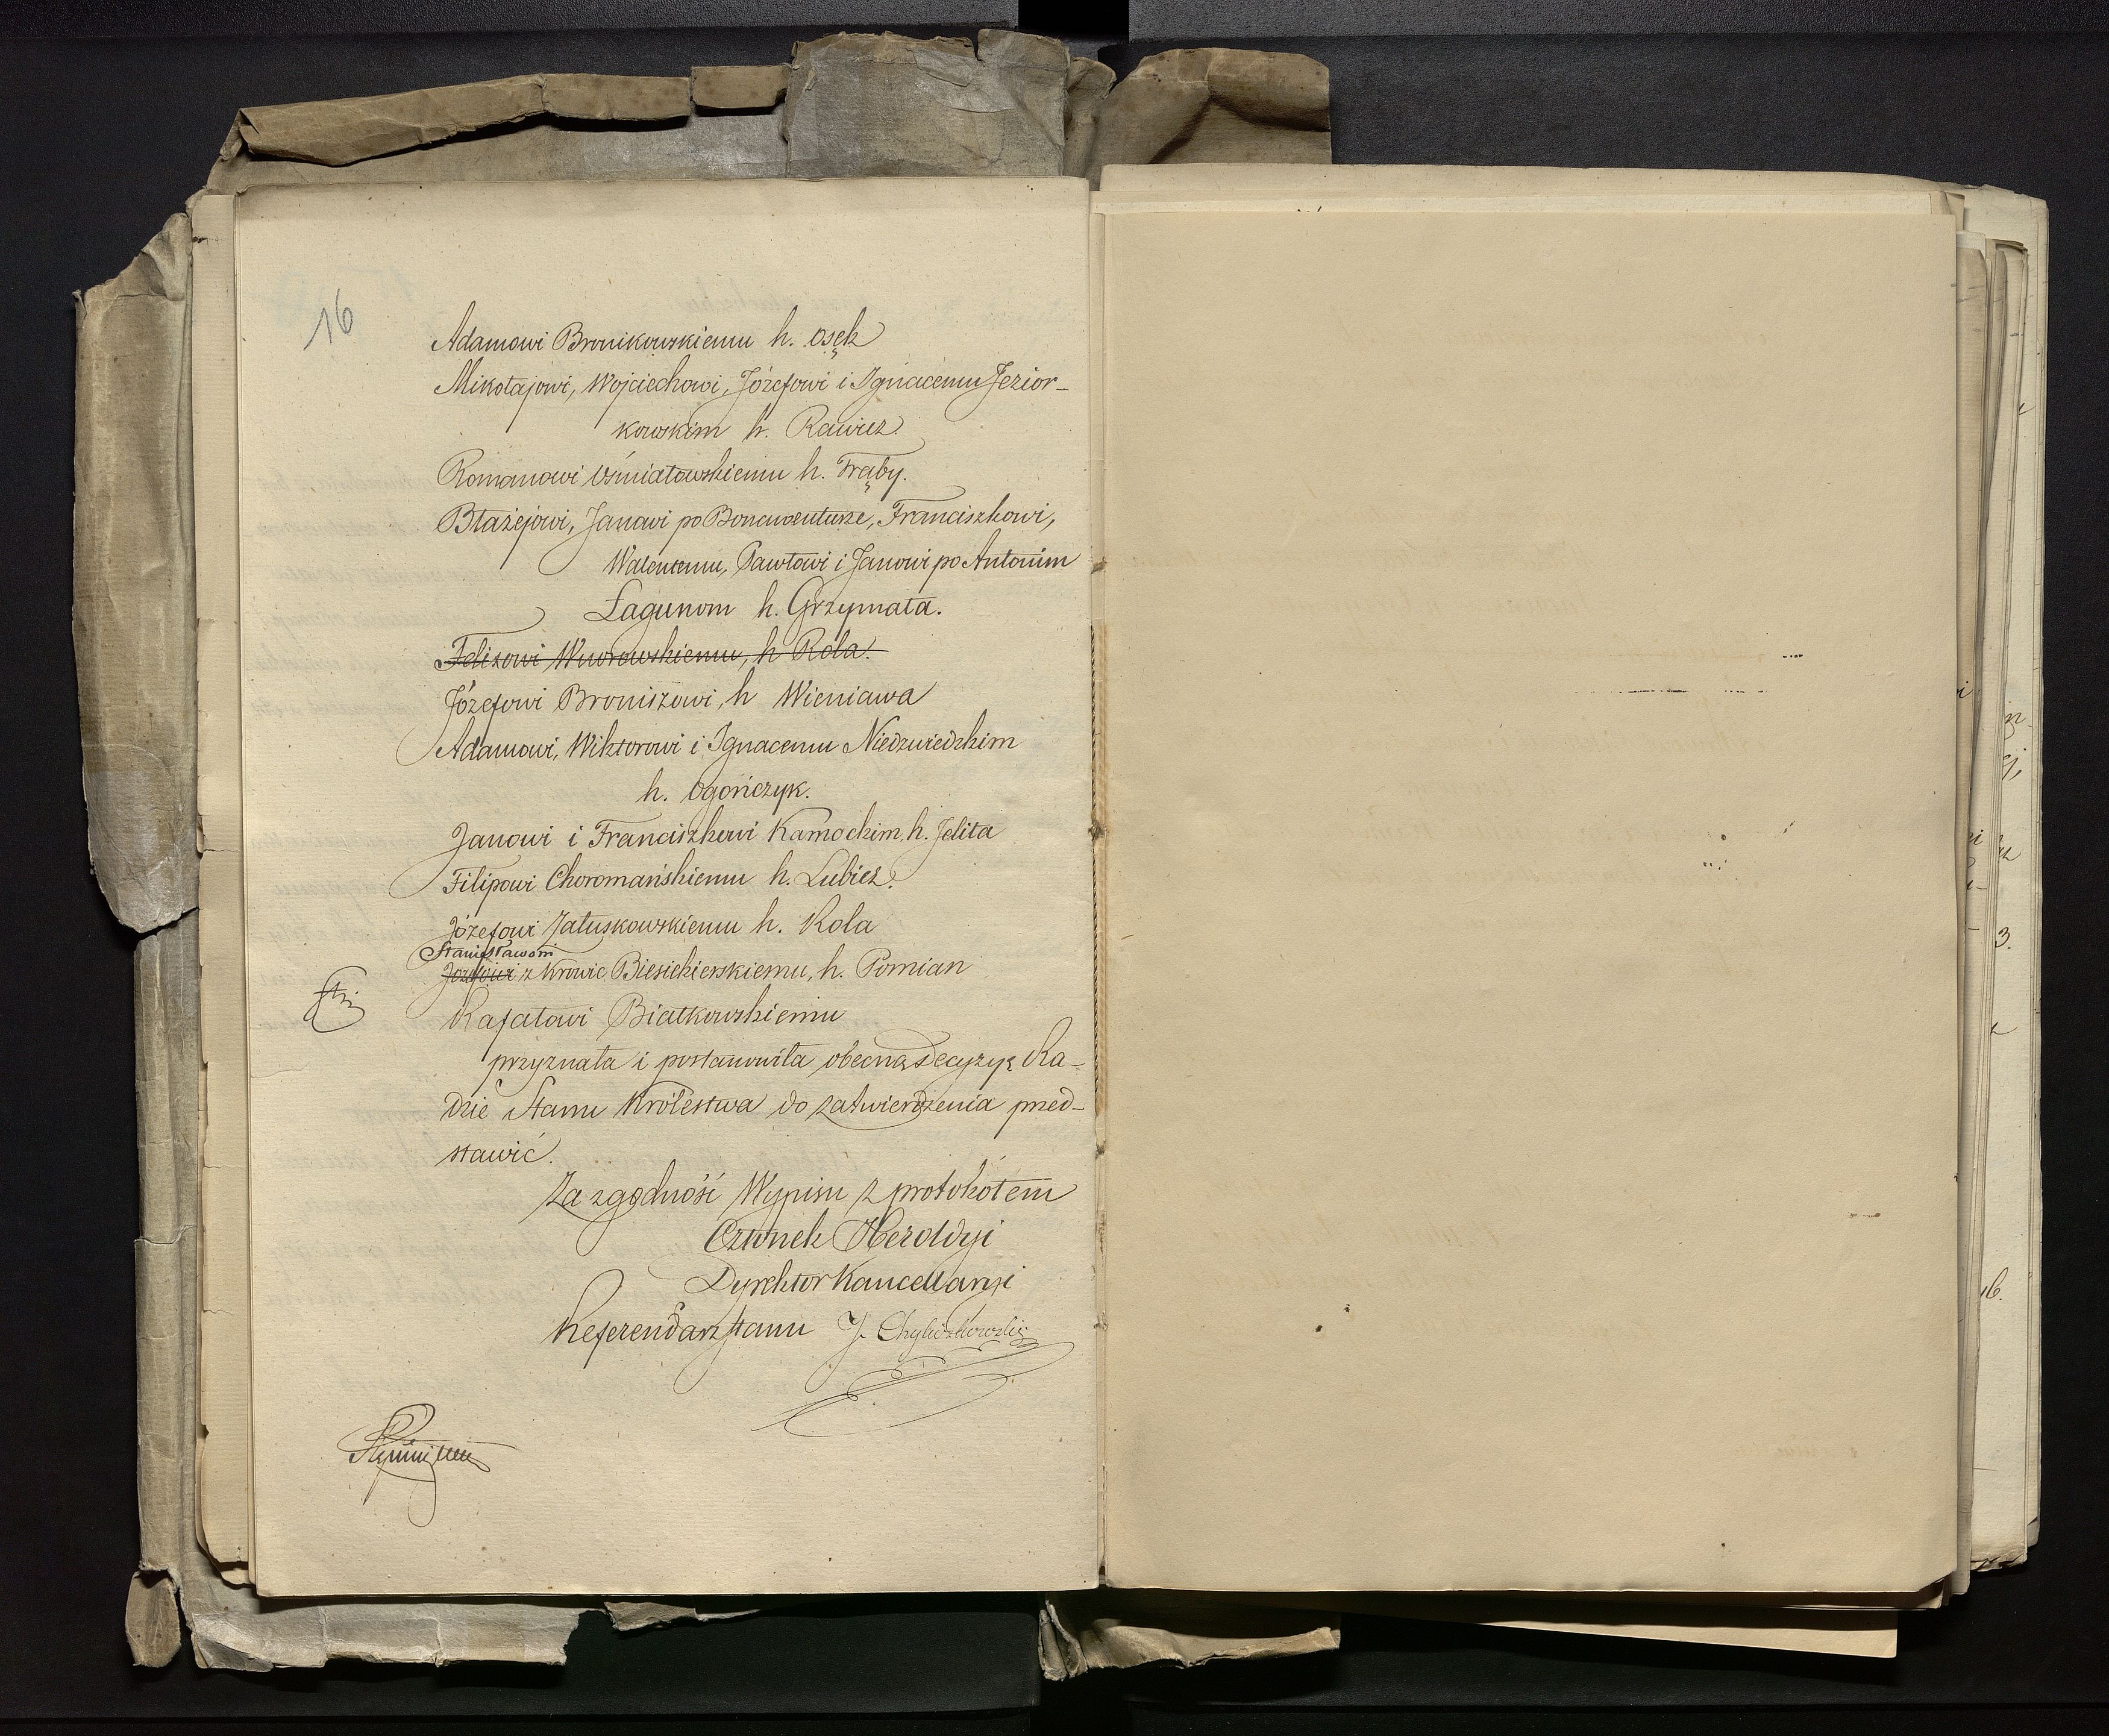 16
Adamowi Bronikowskiemu h. Osęk
Mikołajowi, Wojciechowi, Józefowi i Ignacemu Jezior-
kowskim h. Rawicz.
Romanowi Uśmiatowskiemu h. Trąby.
Błażejowi, Janowi po Bonawenturze, Franciszkowi,
Walentemu, Pawłowi i Janowi po Antonim
Łagunom h. Grzymała.
Felixowi Wuorowskiemu, h Rola.
Józefowi Broniszowi, h Wieniawa
Adamowi, Wiktorowi i Ignacemu Niedzwiedzkim
h. Ogończyk.
Janowi i Franciszkowi Kamockim, h. Jelita
Filipowi Choromańskiemu h. Lubicz.
Józefowi Załuskowskiemu h. Rola
Stanisławowi
Józefowi z Krowic Biesiekierskiemu, h. Pomian
Rafałowi Białkowskiemu
przyznała i postanowiła obecną decyzyę Ra-
dzie Stanu Królestwa do zatwierdzenia przed-
stawić.
Za zgodność Wypisu z protokółem
Członek Heroldyi
Dyrektor Kancellaryi
Referendarz Stanu J. Chyliczkowski
3.
16.